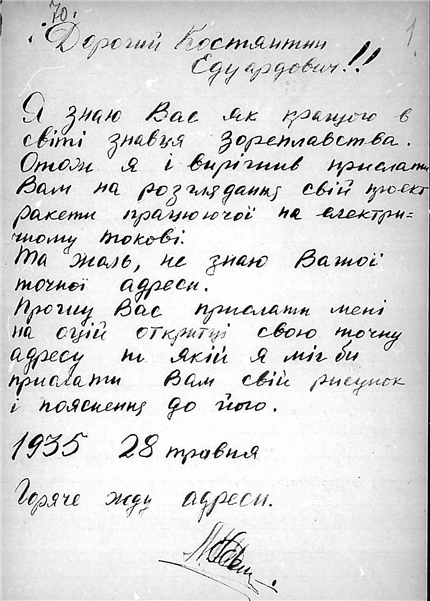 70.
1.
Дорогий Костянтин
Едуардович!!
Я знаю Вас як кращого в
світі знавця Зореплавства.
Отож я і вирішив прислати
Вам на розглядання свій проєкт
ракети працюючої на електри-
чному токові.
Та жаль, не знаю Вашої
точної адреси.
Прошу Вас прислати мені
на оцій открытці свою точну
адресу по якій я міг би
прислати Вам свій рисунок
і пояснення до його.
1935 28 травня
Горяче жду адреси.